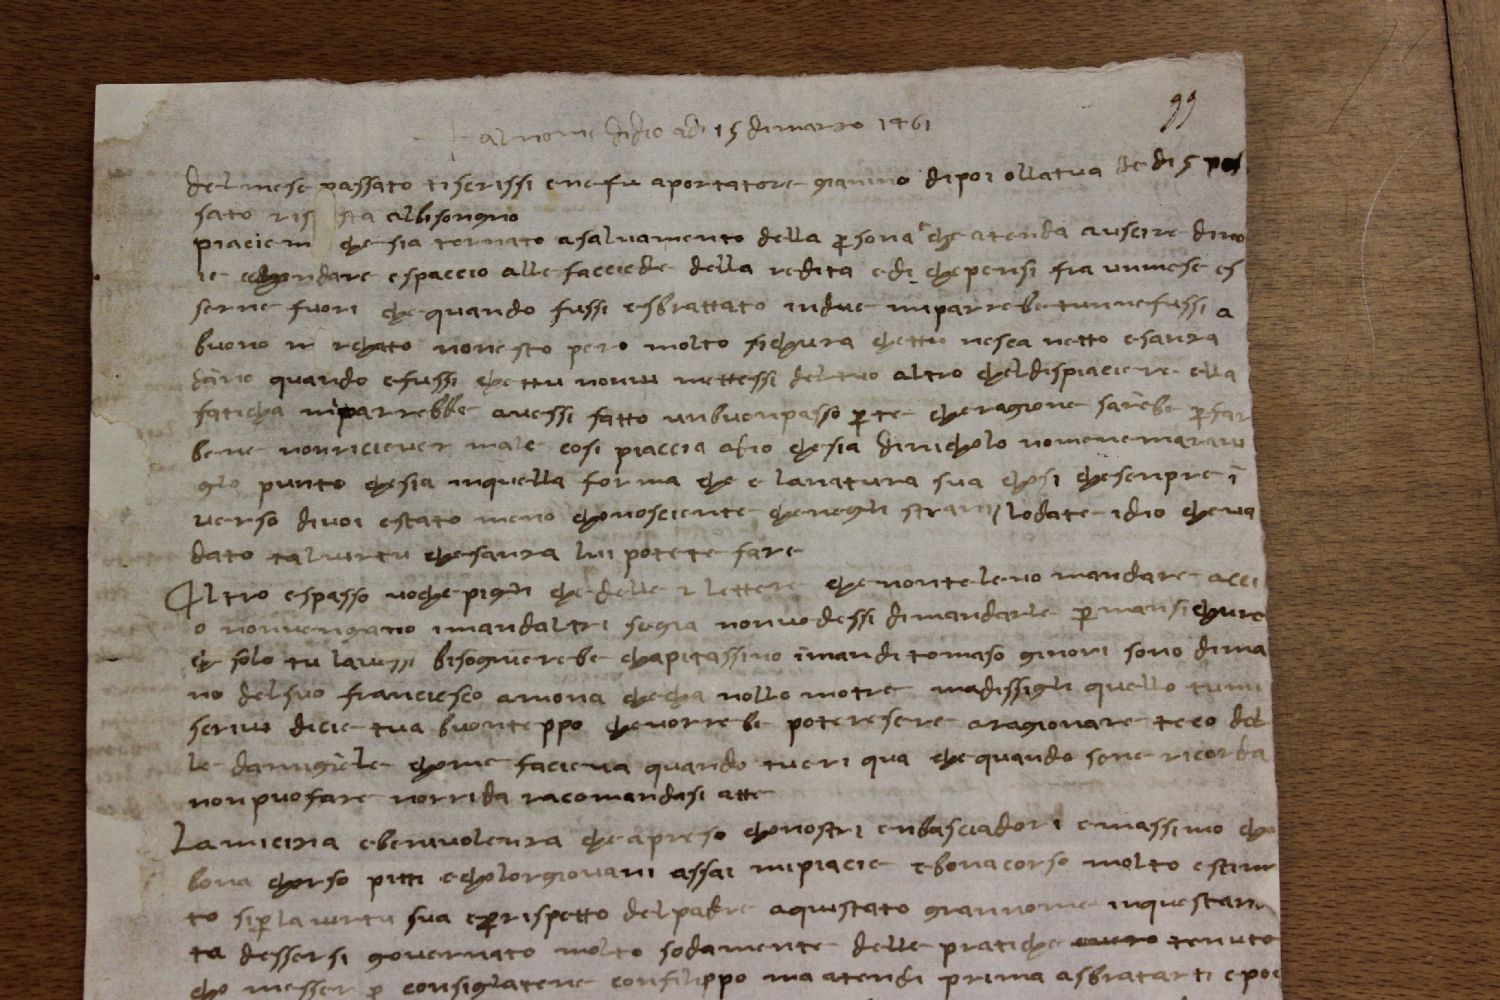 99
al nome didio adi 15 dimarzo 1461
del mese passato tiscrissi enefu aportatore gianino dipoi ollatua de di 5 pas
sato ris sta albisongno
piaciemi che sia tornato asalvamento della persona che atenda auscire dino
ie espaccio alle facciede della redita edi chepensi fra unmese es
serne fuori chequando fussi esbrattato indue miparrebe tunnefussi a
buono m rchato nonesto pero molto sichura chettu nesca netto esanza
dano quando efussi chettu nonvi mettessi deltuo altro cheldispiaciere ella
faticha miparrebbe avessi fatto unbuonpasso per te cheragione sarebe per far
bene nonriciever male cosi piaccia adio chesia dinicholo nomenemaravi
glo punto chesia inquella forma che e lanatura sua chosi chesenpre i
verso divoi estato meno chonosciente chenegli strani lodate idio cheva
dato talvirtu chesanza lui potete fare
Altro espasso voche pigli che delle 2 lettere che nontelevo mandare acci
o nonvengano imandaltri segia nonvedessi dimandarle per mansichure
che solo tu lavessi bisognerebe chapitassino imandi tomaso ginori sono dima
no delsuo franciesco anona checha nollo motre madissigli quello tumi
scrivi dicie tua buonteppo chevorrebe poteresere aragionare teco del
le damigiele chome facieva quando tueri qua chequando sene ricorda
nonpuofare norrida racomandasi atte
Lamicizia ebenivolenza cheapreso chonostri enbasciadori emassimo cho
bona chorso pitti echolorgiovani assai mipiacie ebonacorso molto estima
to siperla virtu sua eperrispetto delpadre aquistato grannome inquestan
ta dessersi governato molto sodamente delle pratiche tenuto
cho messer p consiglatene confilippo ma atendi prima asbratarti epoi